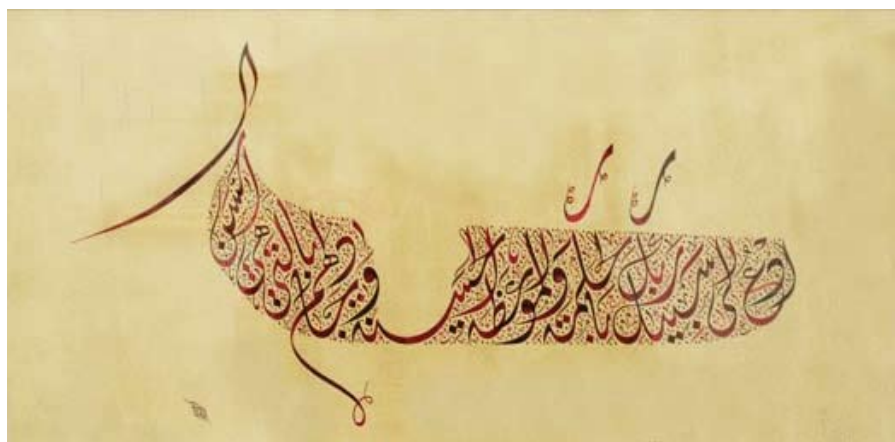 ادع إلى سبيل ربك بالحكمة والموعظة الحسنة وجادلهم بالتي هي أحسن